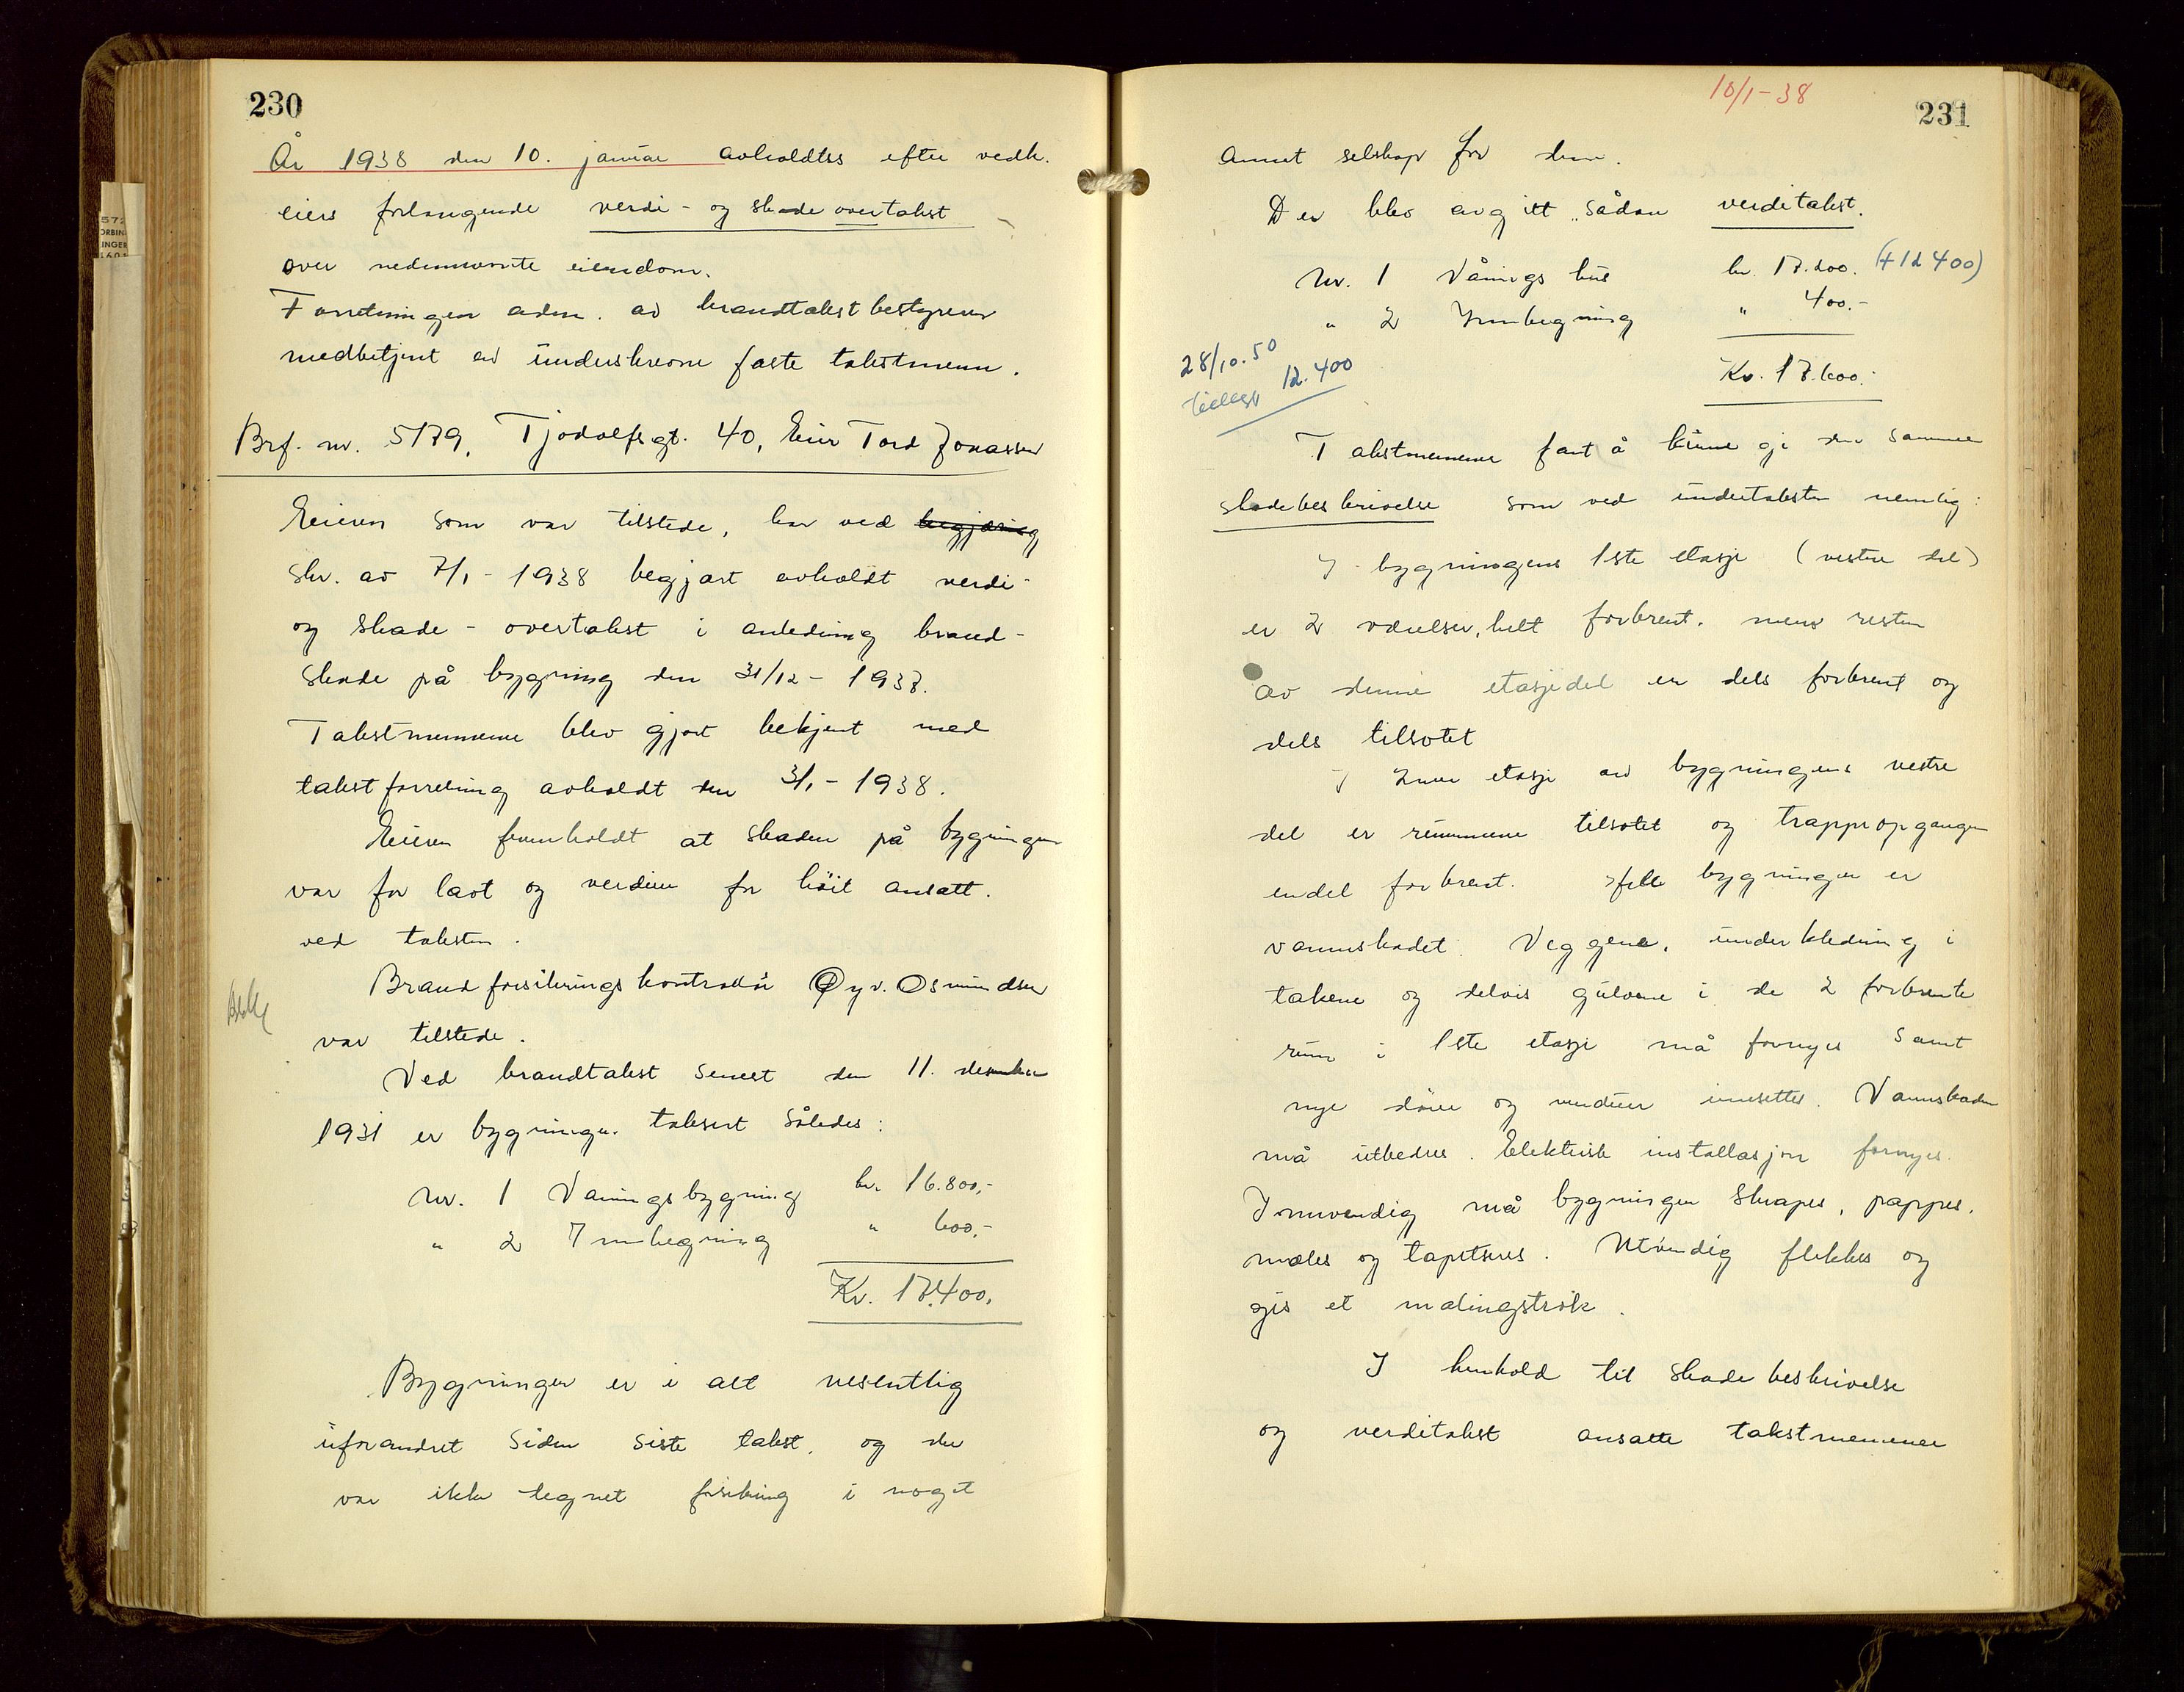 230
År 1938 den 10. januar avholdtes efter vedk.
eiers forlangende verdi- og skade overtakst
over nedennevnte eiendom.
Forretningen adm. av brandtakstbestyreren
medbetjent av underskrevne faste takstmenn.
Brf. nr. 5179, Tjodolfsgt. 40, Eier Tord Jonassen
Eieren som var tilstede, har ved begjæring
skr. av 7/1 - 1938 begjært avholdt verdi-
og skade - overtakst i anledning brand-
skade på bygning den 31/12 - 1937.
Takstmennene blev gjort bekjent med
takstforretning avholdt den 3/1 - 1938.
Eieren fremholdt at skaden på bygningen
var for lavt og verdien for höit ansatt.
ved taksten.
Brandforsikringskontrollör Öyv. Osmundsen
var tilstede.
Ved brandtakst senest den 11. desember
1931 er bygningen taksert således:
Nr. 1 Vaningsbygning kr. 16.800,-
" 2 Innhegning " 600,-
Kr. 17.400,
Bygningen er i alt vesentlig
uforandret siden siste takst, og der
var ikke tegnet forsikring i noget
10/1-38
231
annet selskap for dem.
Der blev avgitt sådan verditakst.
Nr. 1 Vånings hus kr. 17.200. (+12400)
" 2 Innhegning " 400.-
Kr. 17.600.-
28/10.50
tillegg 12.400
Takstmennene fant å kunne gi den samme
skadebeskrivelse som ved undertaksten nemlig:
I bygningens 1ste etasje (vestre del)
er 2 værelser, helt forbrent. mens resten
av denne etasjedel er dels forbrent og
dels tilsotet
I 2nen etasje av bygningens vestre
del er rummene tilsotet og trappeopgangen
endel forbrent. Hele bygningen er
vannskadet. Veggene, underkledning i
takene og delvis gulvene i de 2 forbrente
rum i 1ste etasje må fornyes samt
nye döre og vinduer innsettes. Vannskaden
må utbedres. Elektrisk installasjon fornyes.
Innvendig må bygningen skrapes, pappes,
males og tapetseres. Utvendig flikkes og
gis et malingströk.
I henhold til skadebeskrivelse
og verditakst ansatte takstmennene